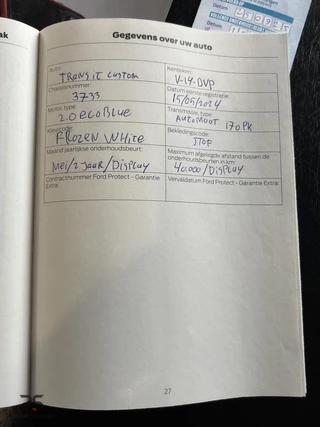 Gegevens over uw auto
Auto:
TRANSIT CUSTOM
Kenteken:
V-14-DVP
Chassisnummer:
3733
Datum eerste registratie:
15/05/2024
Motor, type:
2.0 ECOBLUE
Transmissie, type:
AUTOMAAT 170 PK
Kleurcode:
FROZEN WHITE
Bekledingscode:
STOF
Maand jaarlijkse onderhoudsbeurt:
MEI/2 JAAR/DISPLAY
Maximum afgelegde afstand tussen de
onderhoudsbeurten in km:
40.000/DISPLAY
Contractnummer Ford Protect - Garantie
Extra:
Vervaldatum Ford Protect - Garantie Extra:
27